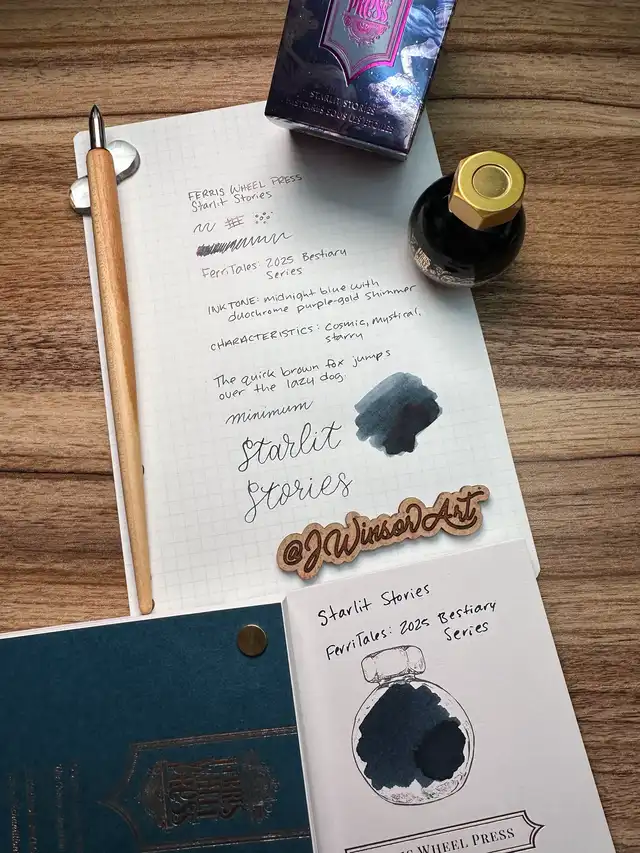 PRESS
STARLIT STORIES
HISTOIRES SOUS LES ÉTOILES
FERRIS WHEEL PRESS
Starlit Stories
FerriTales: 2025 Bestiary
Series
INK TONE: midnight blue with
duochrome purple-gold shimmer
CHARACTERISTICS: cosmic, mystical,
starry
The quick brown fox jumps
over the lazy dog.
minimum
Starlit
Stories
@JWinsorArt
Starlit Stories
FerriTales: 2025 Bestiary
Series
FERRIS WHEEL PRESS